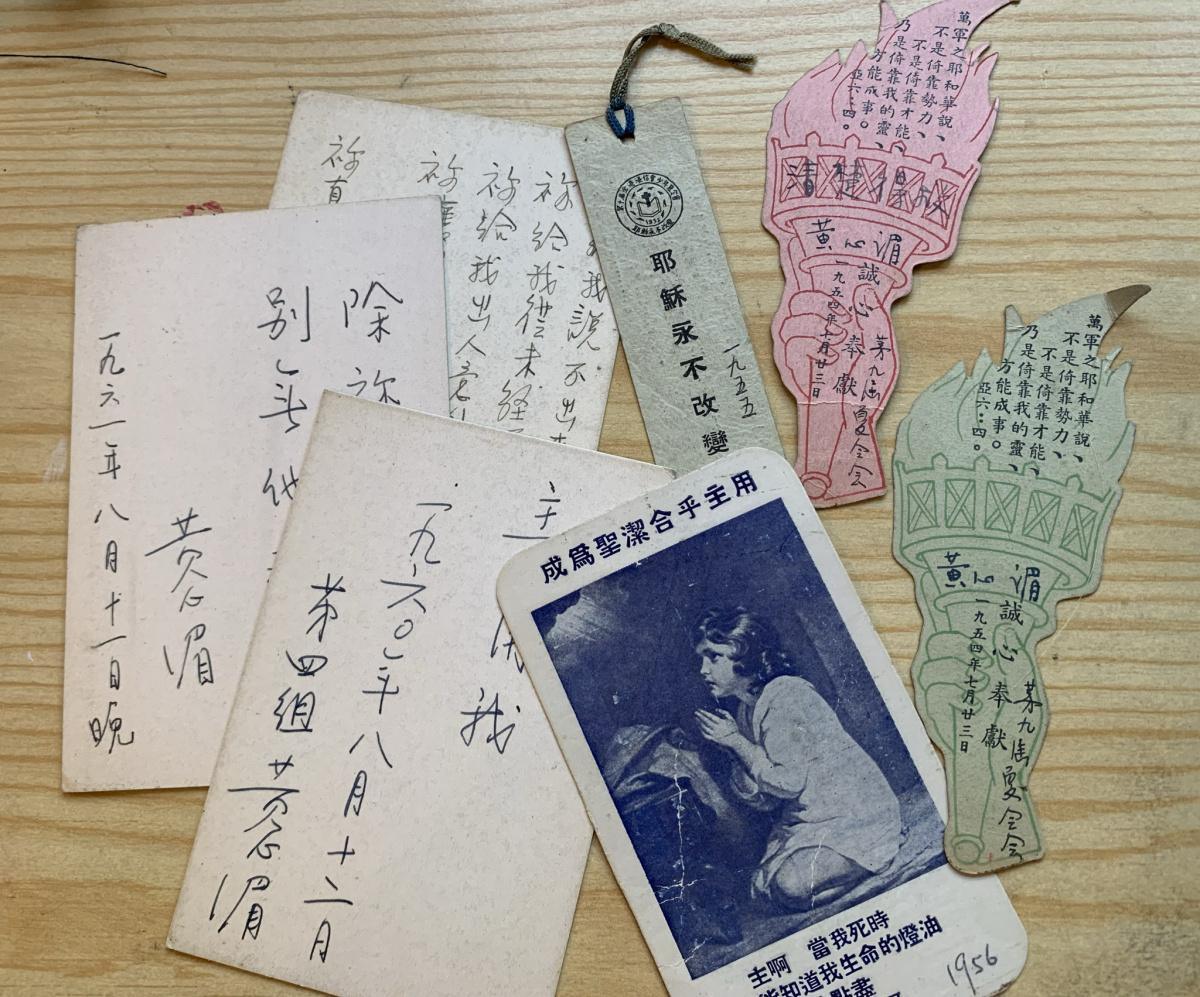 祢
祢
祢給我出人意
祢給我從未經
祢
我說不出
除祢
別無
黃心湄
一九六一年八月十一日晚
主
我
一九六〇年八月十二日
第四組黃心湄
耶穌永不改變
一九五五
成爲聖潔合乎主用
主啊 當我死時
能知道我生命的燈油
點盡
1956
萬軍之耶和華說、
不是倚靠勢力、
不是倚靠才能、
乃是倚靠我的靈、
方能成事。
亞六:四。
黃心湄
誠心奉獻
一九五四年七月廿三日
第九屆夏令會
萬軍之耶和華說、
不是倚靠勢力、
不是倚靠才能、
乃是倚靠我的靈、
方能成事。
亞六:四。
黃心湄
誠心奉獻
一九五四年七月廿三日
第九屆夏令會